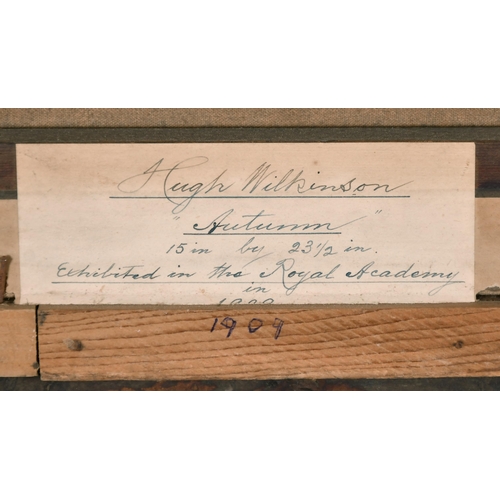 Hugh Wilkinson
"Autumn"
15 in by 23 1/2 in.
Exhibited in the Royal Academy
in
1909